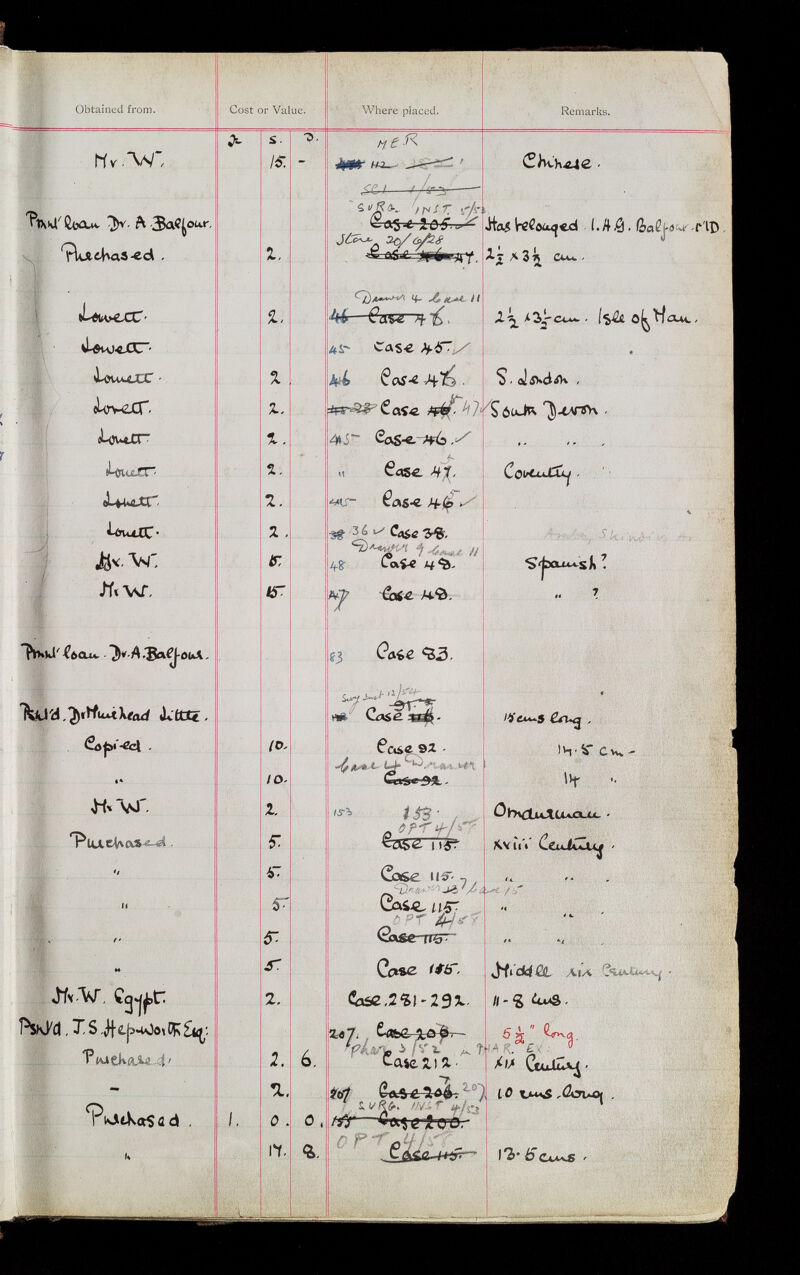 Obtained from. Cost or Value. Where placed. Remarks.
£ s. D.
MER
Mr. W. 15. - 112 Chinese.
SCI 4/53
SURG. INST. 5/53
Pmnt' Loan Dr. A. Balfour. Case 205. Has belonged I.A.B. Balfour MD.
Store 20/6/28
Purchased. 2. Case 47. 2½ x 3½ cm.
Drawer 4 Case 11
Lovett. 2. 46 Case 46. 2½ x 3½ cm. Isle of Man.
Lovett. 45 Case 45.
Lovett. 2. 46 Case 46. S. London.
Lovett. 2. Case 47 South Devon.
Lovett. 2. 45 Case 46. " "
Lovett. 2. " Case 47. Coventry.
Lovett. 2. 45 Case 46
Lovett. 2. 38 36 Case 38.
Drawer 9 Case 11
Mr. W. 15. 48 Case 48. Spanish?
Mr W. 15. 47 Case 48. " ?
Pmnt' Loan. Dr. A. Balfour. 83 Case 83.
Surg Inst 12/54
Psn'd. Dr Muirhead Little. Case 15 cms long.
Copied. 10. Case 92. 14.5 cm -
Case 4 Drawer 1
" 10. Case 92. 14 "
Mr W. 2. 153 153. Omdurman.
OPT 4/58
Purchased. 5. Case 115. XVIII Century.
" 5. Case 115. " "
Drawer 13 Case 15
" 5. Case 115. " "
OPT 4/58
" 5. Case 115. " "
" 5. Case 115. Middle XIX Century.
Mr. W. Egypt. 2. Case. 281-292. 11-8 cms.
Psn'd. J. S. Hepworth Esq: 207. Case 208. 5½" long.
Phar 3/52 PHAR. EX:
Purchased. 2. 6. Case 212. XIX Century.
- 2. 207 Case 206. 207 10 cms. long.
SURG. INST 4/53
Purchased. 1. 0. 0. 155 Case 200.
OPT 4/58
" 17. 8. Case 115. 13.5 cms.